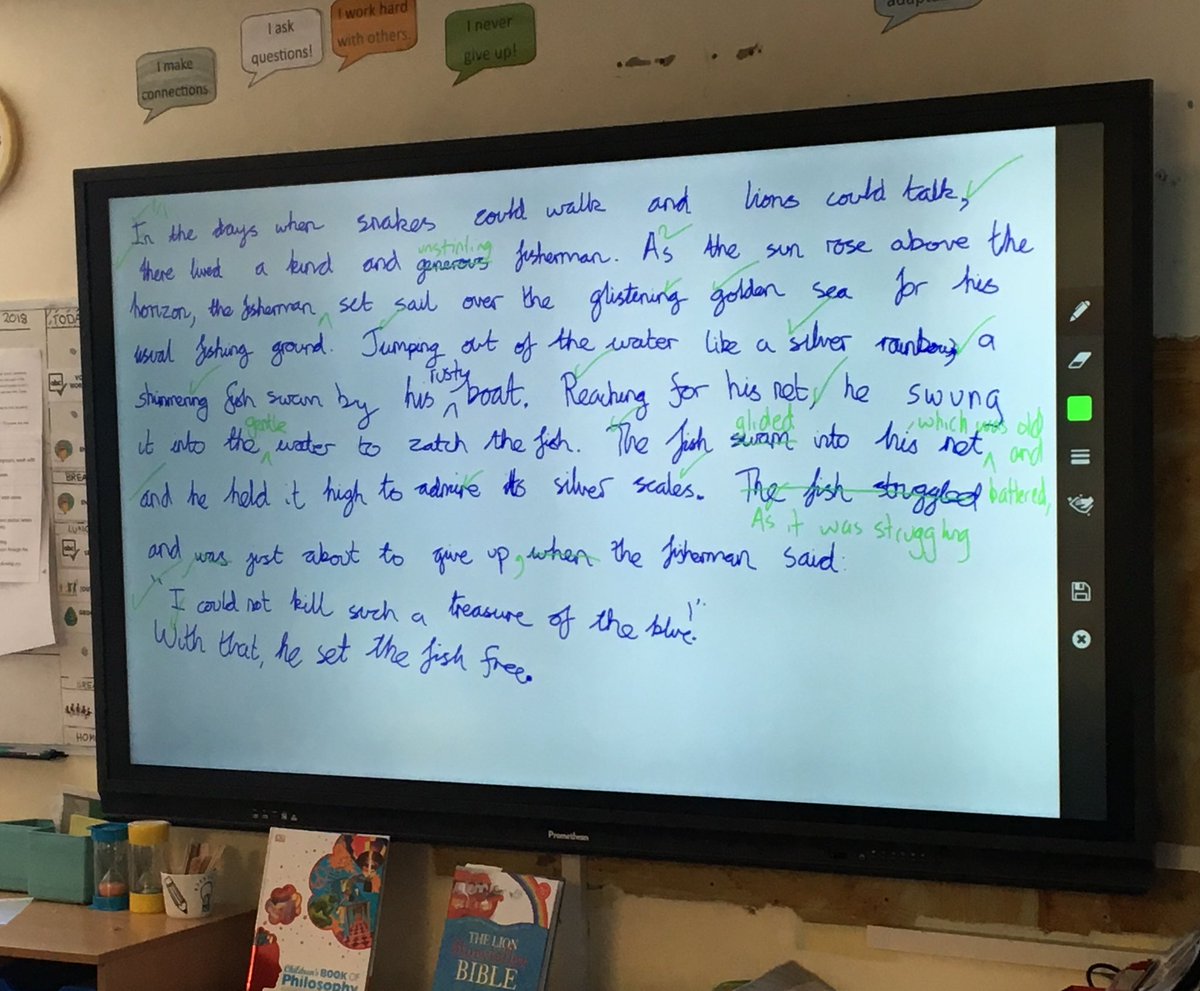 I make
connections.
I ask
questions!
I work hard
with others.
I never
give up!
2018
TODA
In the days when snakes could walk and lions could talk,
there lived a kind and generous unstinting fisherman. As the sun rose above the
horizon, the fisherman set sail over the glistening golden sea for his
usual fishing ground. Jumping out of the water like a silver rainbow, a
shimmering fish swam by his rusty boat. Reaching for his net, he swung
it into the gentle water to catch the fish. The fish swam glided into his net, which was old and battered,
and he held it high to admire its silver scales. The fish struggled As it was struggling
and was just about to give up, when the fisherman said:
"I could not kill such a treasure of the blue!"
With that, he set the fish free.
Promethean
Children's BOOK OF
Philosophy
THE LION
BIBLE